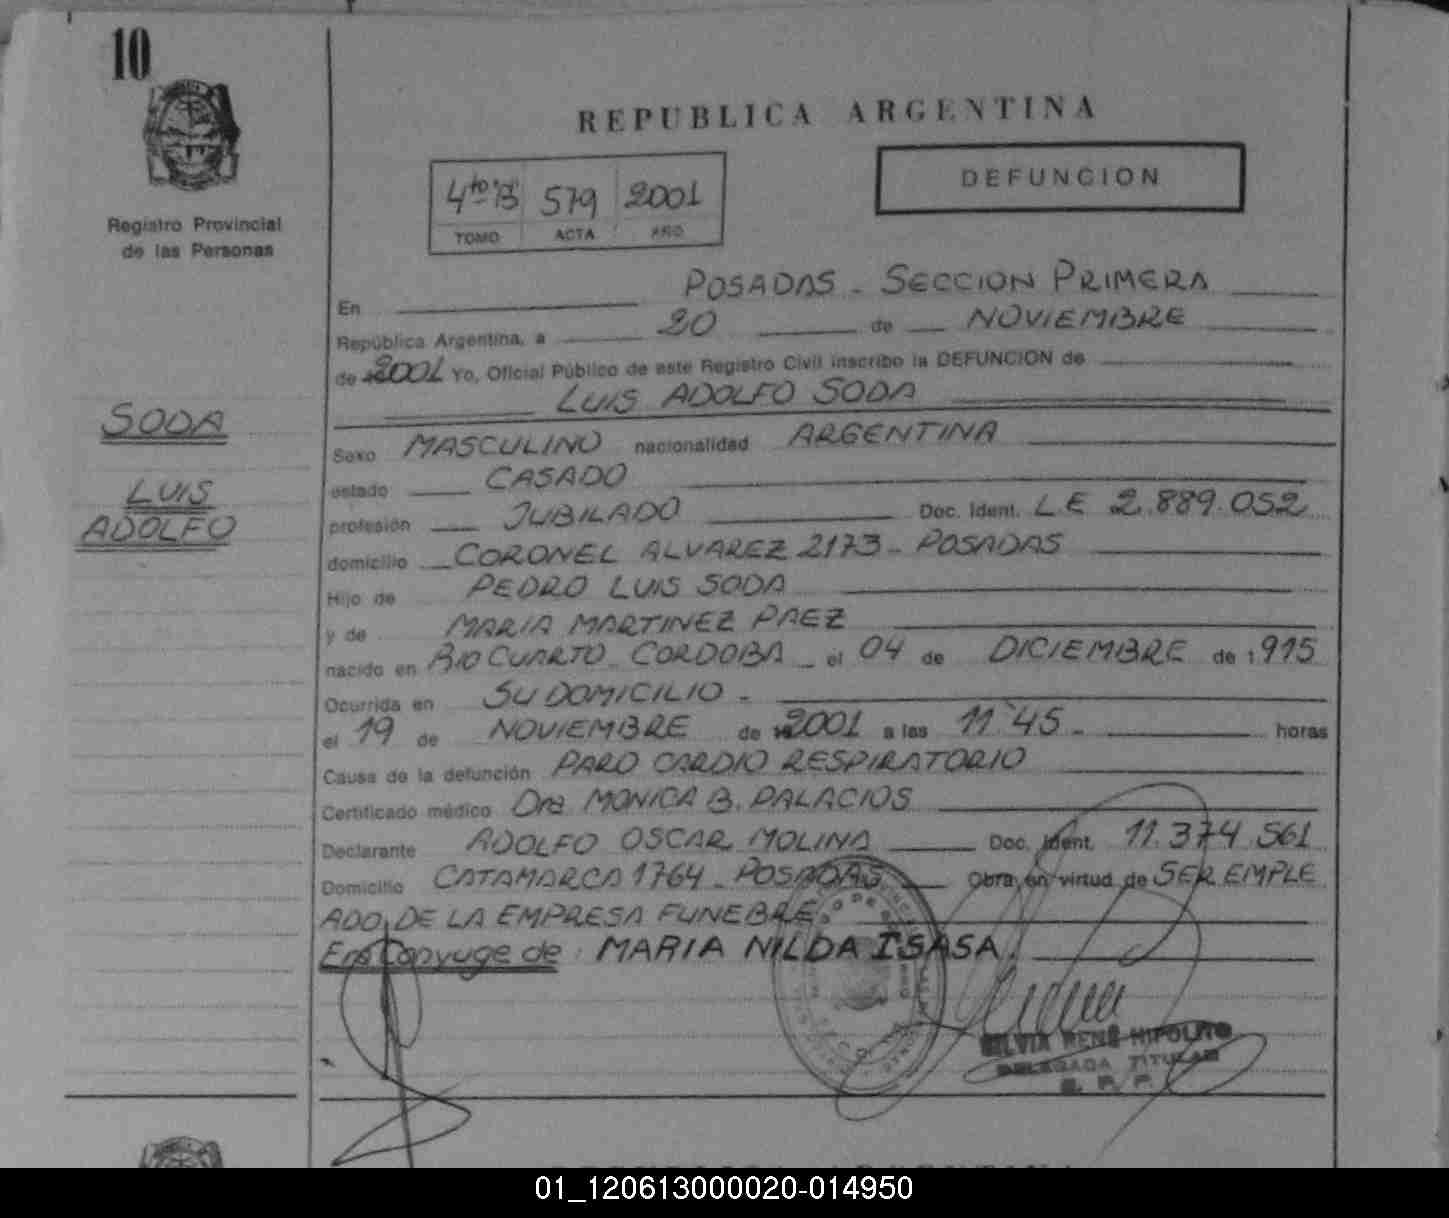 10
Registro Provincial
de las Personas
SODA
LUIS
ADOLFO
REPUBLICA ARGENTINA
4to "B" 579 2001
TOMO ACTA AÑO
DEFUNCION
En POSADAS - SECCION PRIMERA
República Argentina, a 20 de NOVIEMBRE
de 2001 Yo, Oficial Público de este Registro Civil inscribo la DEFUNCION de
LUIS ADOLFO SODA
Sexo MASCULINO nacionalidad ARGENTINA
estado CASADO
profesión JUBILADO Doc. Ident. L.E 2.889.052
domicilio CORONEL ALVAREZ 2173 - POSADAS
Hijo de PEDRO LUIS SODA
y de MARIA MARTINEZ PAEZ
nacido en RIO CUARTO - CORDOBA - el 04 de DICIEMBRE de 1915
Ocurrida en SU DOMICILIO -
el 19 de NOVIEMBRE de 2001 a las 11:45 - horas
Causa de la defunción PARO CARDIO RESPIRATORIO
Certificado médico Dra. MONICA B. PALACIOS
Declarante ADOLFO OSCAR MOLINA Doc. Ident. 11.374.561
Domicilio CATAMARCA 1764 - POSADAS Obra en virtud de SER EMPLE
ADO DE LA EMPRESA FUNEBRE
Era Conyuge de: MARIA NILDA ISASA.
SILVIA RENE HIPOLITO
DELEGADA TITULAR
R. P. P.
01_120613000020-014950